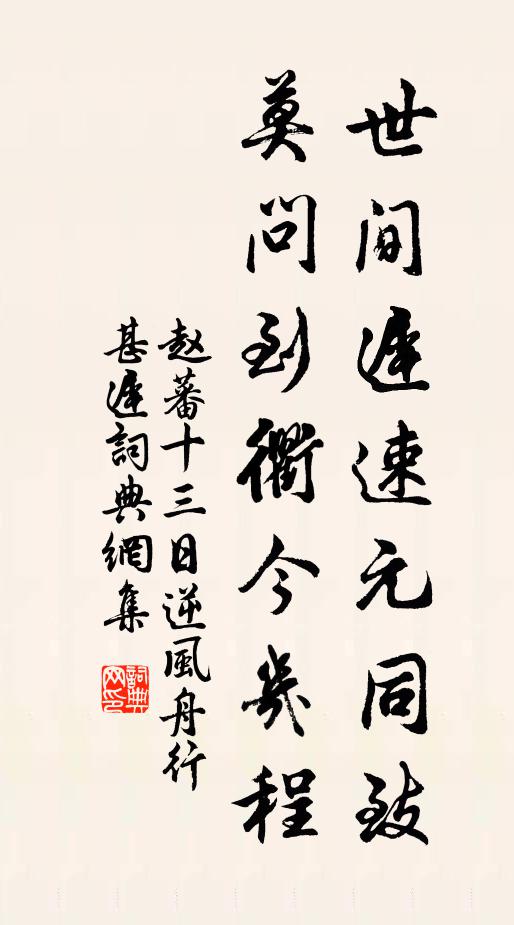 世间遲速元同致
莫问到衢今幾程
赵蕃十三日逆風舟行
甚遲詞典網集
詞典网印